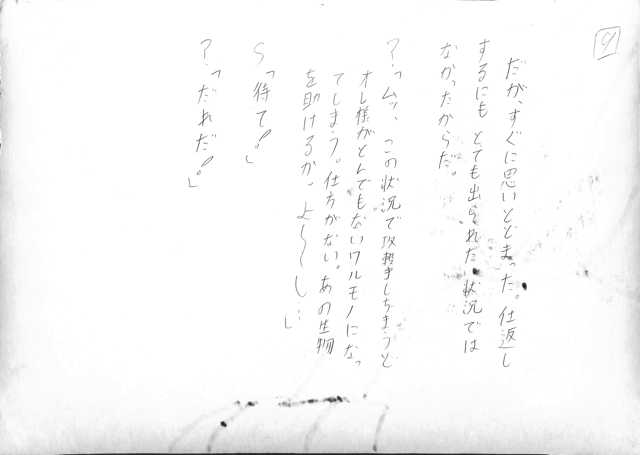 9
だが、すぐに思いとどまった。仕返し
するにも とても出られた状況では
なかったからだ。
?「ムッ、この状況で攻撃しちまうと
オレ様がとんでもないワルモノになっ
てしまう。仕方がない。あの生物
を助けるか。よ〜〜し…」
S「待て!」
?「だれだ!」